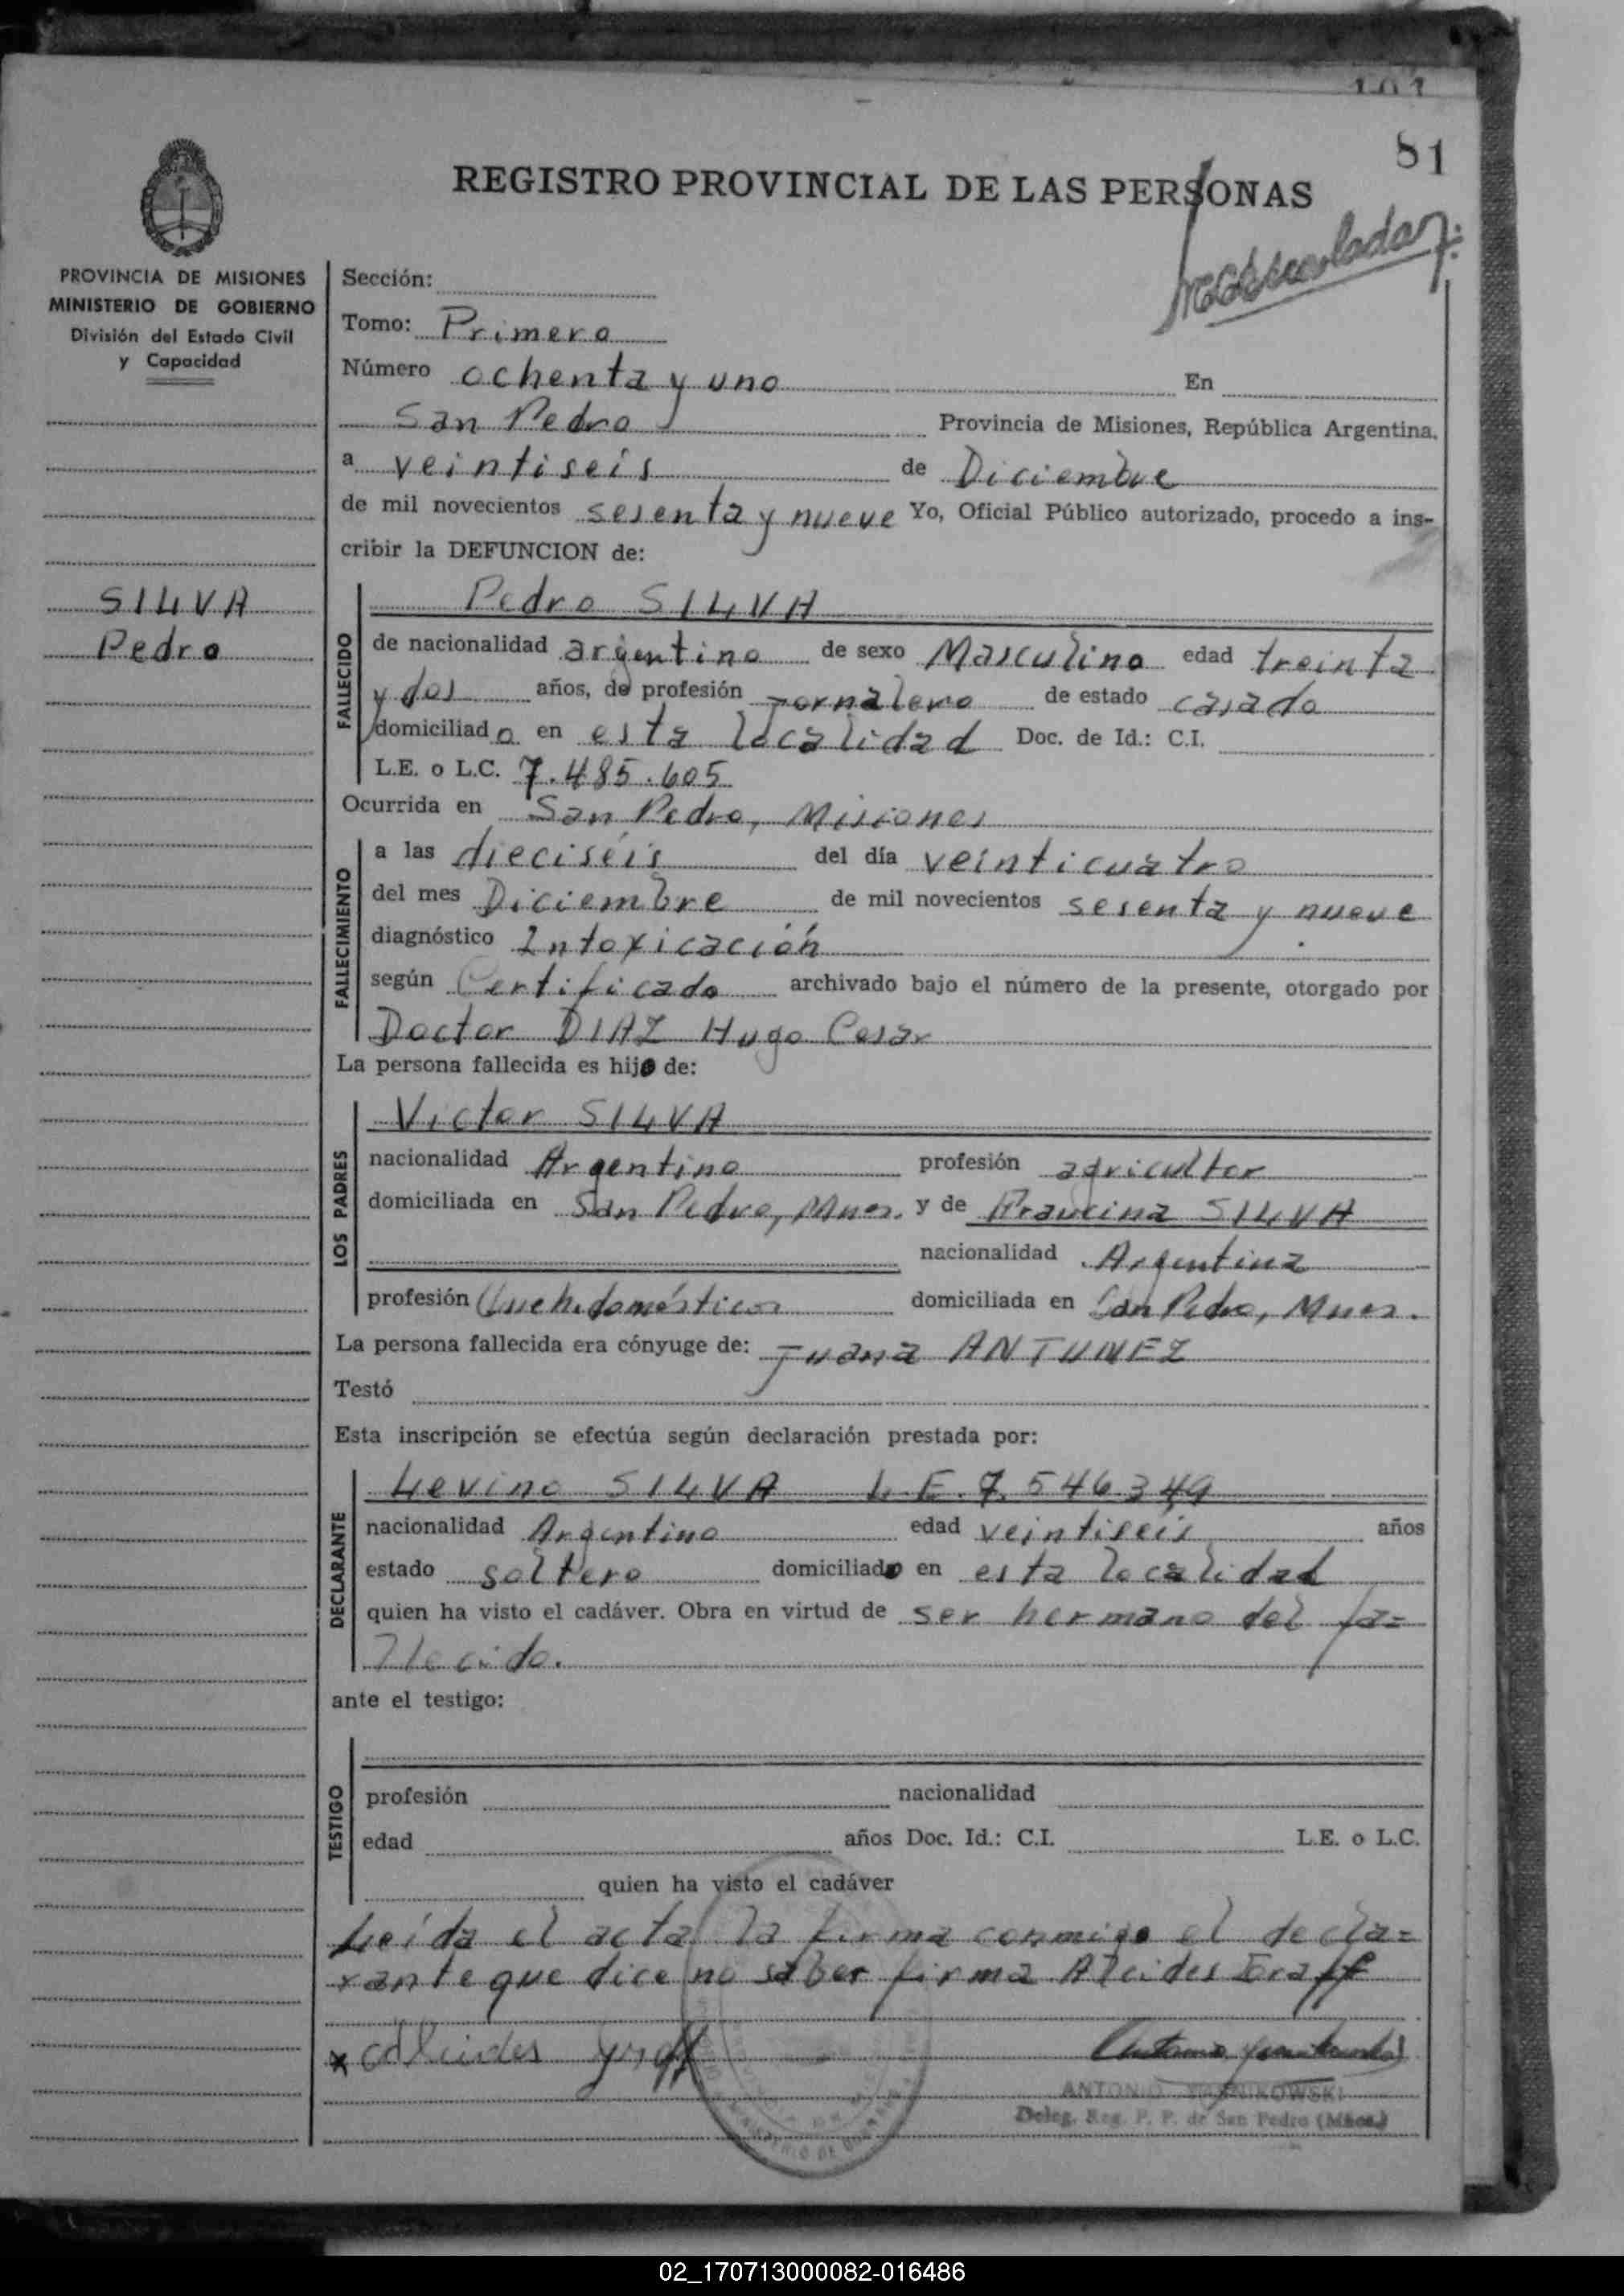 81
REGISTRO PROVINCIAL DE LAS PERSONAS
PROVINCIA DE MISIONES
MINISTERIO DE GOBIERNO
División del Estado Civil
y Capacidad
SILVA
Pedro
Sección:
Tomo: Primero
Número ochenta y uno En
San Pedro Provincia de Misiones, República Argentina.
a veintiseis de Diciembre
de mil novecientos sesenta y nueve Yo, Oficial Público autorizado, procedo a ins-
cribir la DEFUNCION de:
FALLECIDO
Pedro SILVA
de nacionalidad argentino de sexo Masculino edad treinta
y dos años, de profesión Jornalero de estado casado
domiciliado en esta localidad Doc. de Id.: C.I.
L.E. o L.C. 7.485.605
Ocurrida en San Pedro, Misiones
FALLECIMIENTO
a las dieciséis del día veinticuatro
del mes Diciembre de mil novecientos sesenta y nueve
diagnóstico Intoxicación
según Certificado archivado bajo el número de la presente, otorgado por
Doctor DIAZ Hugo Cesar
La persona fallecida es hijo de:
LOS PADRES
Victor SILVA
nacionalidad Argentino profesión agricultor
domiciliada en San Pedro, Mnes. y de SILVA
nacionalidad Argentina
profesión Queh. domésticos domiciliada en San Pedro, Mnes.
La persona fallecida era cónyuge de: Juana ANTUNEZ
Testó
Esta inscripción se efectúa según declaración prestada por:
DECLARANTE
Levino SILVA L.E. 7.546349
nacionalidad Argentino edad veintiseis años
estado soltero domiciliado en esta localidad
quien ha visto el cadáver. Obra en virtud de ser hermano del fa=
llecido.
ante el testigo:
TESTIGO
profesión nacionalidad
edad años Doc. Id.: C.I. L.E. o L.C.
quien ha visto el cadáver
Leída el acta la firma conmigo el decla=
rante que dice no saber firma Alcides
x Alcides
ANTONIO
Deleg. Reg. P. P. de San Pedro (Mnes.)
02_170713000082-016486